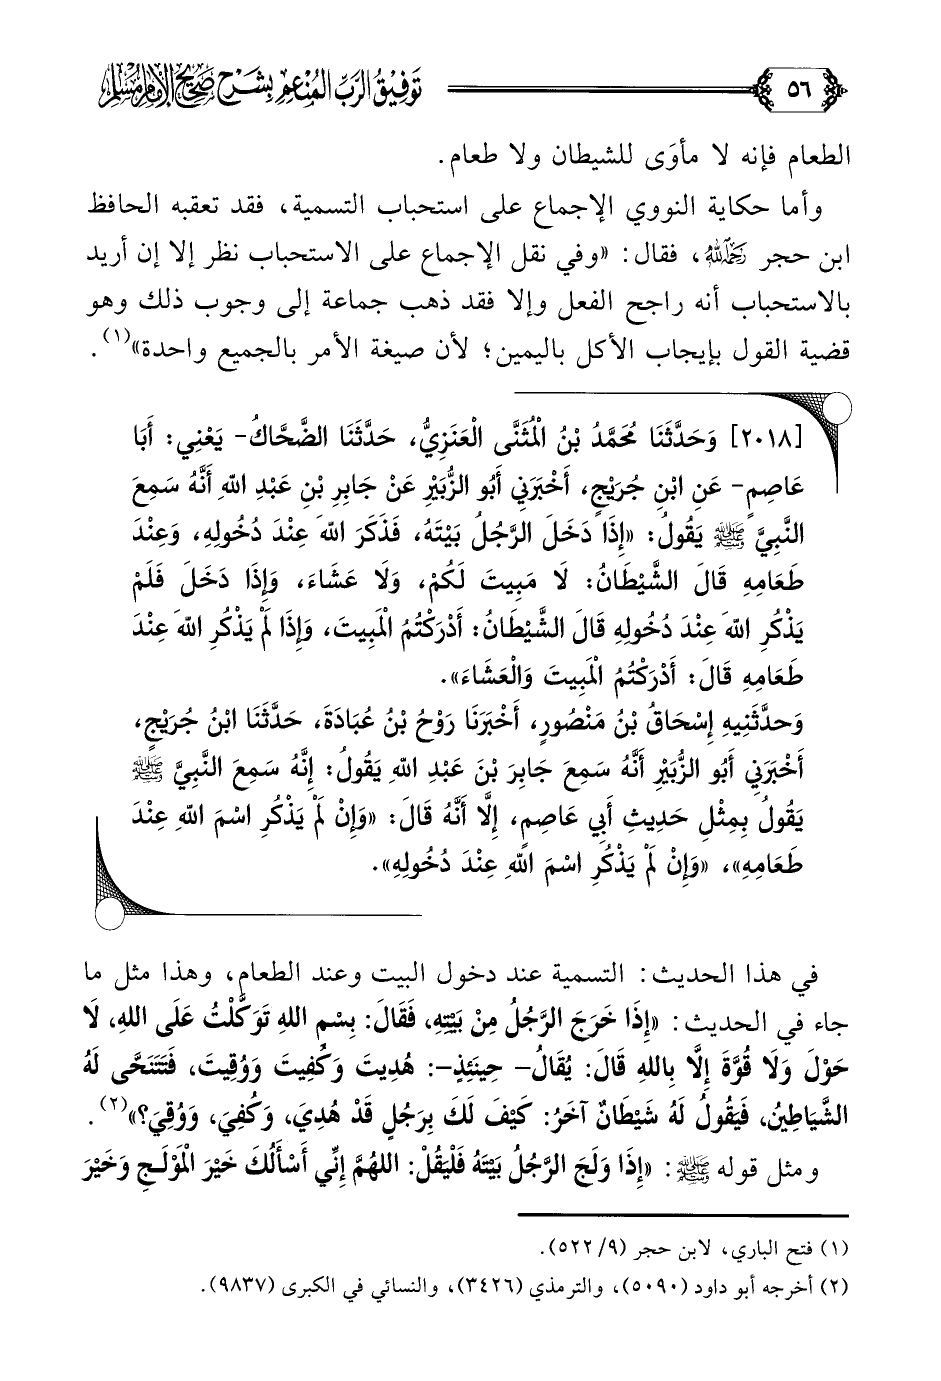 ٥٦ توفيق الرب المنعم بشرح صحيح الإمام مسلم
الطعام فإنه لا مأوَى للشيطان ولا طعام.
وأما حكاية النووي الإجماع على استحباب التسمية، فقد تعقبه الحافظ
ابن حجر رَحِمَهُ اللهُ، فقال: «وفي نقل الإجماع على الاستحباب نظر إلا إن أريد
بالاستحباب أنه راجح الفعل وإلا فقد ذهب جماعة إلى وجوب ذلك وهو
قضية القول بإيجاب الأكل باليمين؛ لأن صيغة الأمر بالجميع واحدة»(١).
[٢٠١٨] وَحَدَّثَنَا مُحَمَّدُ بْنُ الْمُثَنَّى الْعَنَزِيُّ، حَدَّثَنَا الضَّحَّاكُ- يَعْنِي: أَبَا
عَاصِمٍ- عَنِ ابْنِ جُرَيْجٍ، أَخْبَرَنِي أَبُو الزُّبَيْرِ عَنْ جَابِرِ بْنِ عَبْدِ اللهِ أَنَّهُ سَمِعَ
النَّبِيَّ ﷺ يَقُولُ: «إِذَا دَخَلَ الرَّجُلُ بَيْتَهُ، فَذَكَرَ اللهَ عِنْدَ دُخُولِهِ، وَعِنْدَ
طَعَامِهِ قَالَ الشَّيْطَانُ: لَا مَبِيتَ لَكُمْ، وَلَا عَشَاءَ، وَإِذَا دَخَلَ فَلَمْ
يَذْكُرِ اللهَ عِنْدَ دُخُولِهِ قَالَ الشَّيْطَانُ: أَدْرَكْتُمُ الْمَبِيتَ، وَإِذَا لَمْ يَذْكُرِ اللهَ عِنْدَ
طَعَامِهِ قَالَ: أَدْرَكْتُمُ الْمَبِيتَ وَالْعَشَاءَ».
وَحدَّثَنِيهِ إِسْحَاقُ بْنُ مَنْصُورٍ، أَخْبَرَنَا رَوْحُ بْنُ عُبَادَةَ، حَدَّثَنَا ابْنُ جُرَيْجٍ،
أَخْبَرَنِي أَبُو الزُّبَيْرِ أَنَّهُ سَمِعَ جَابِرَ بْنَ عَبْدِ اللهِ يَقُولُ: إِنَّهُ سَمِعَ النَّبِيَّ ﷺ
يَقُولُ بِمِثْلِ حَدِيثِ أَبِي عَاصِمٍ، إِلَّا أَنَّهُ قَالَ: «وَإِنْ لَمْ يَذْكُرِ اسْمَ اللهِ عِنْدَ
طَعَامِهِ»، «وَإِنْ لَمْ يَذْكُرِ اسْمَ اللهِ عِنْدَ دُخُولِهِ».
في هذا الحديث: التسمية عند دخول البيت وعند الطعام، وهذا مثل ما
جاء في الحديث: «إِذَا خَرَجَ الرَّجُلُ مِنْ بَيْتِهِ، فَقَالَ: بِسْمِ اللهِ تَوَكَّلْتُ عَلَى اللهِ، لَا
حَوْلَ وَلَا قُوَّةَ إِلَّا بِاللهِ قَالَ: يُقَالُ- حِينَئِذٍ-: هُدِيتَ وَكُفِيتَ وَوُقِيتَ، فَتَتَنَحَّى لَهُ
الشَّيَاطِينُ، فَيَقُولُ لَهُ شَيْطَانٌ آخَرُ: كَيْفَ لَكَ بِرَجُلٍ قَدْ هُدِيَ، وَكُفِيَ، وَوُقِيَ؟»(٢).
ومثل قوله ﷺ: «إِذَا وَلَجَ الرَّجُلُ بَيْتَهُ فَلْيَقُلْ: اللهُمَّ إِنِّي أَسْأَلُكَ خَيْرَ الْمَوْلَجِ وَخَيْرَ
(١) فتح الباري، لابن حجر (٥٢٢/٩).
(٢) أخرجه أبو داود (٥٠٩٠)، والترمذي (٣٤٢٦)، والنسائي في الكبرى (٩٨٣٧).